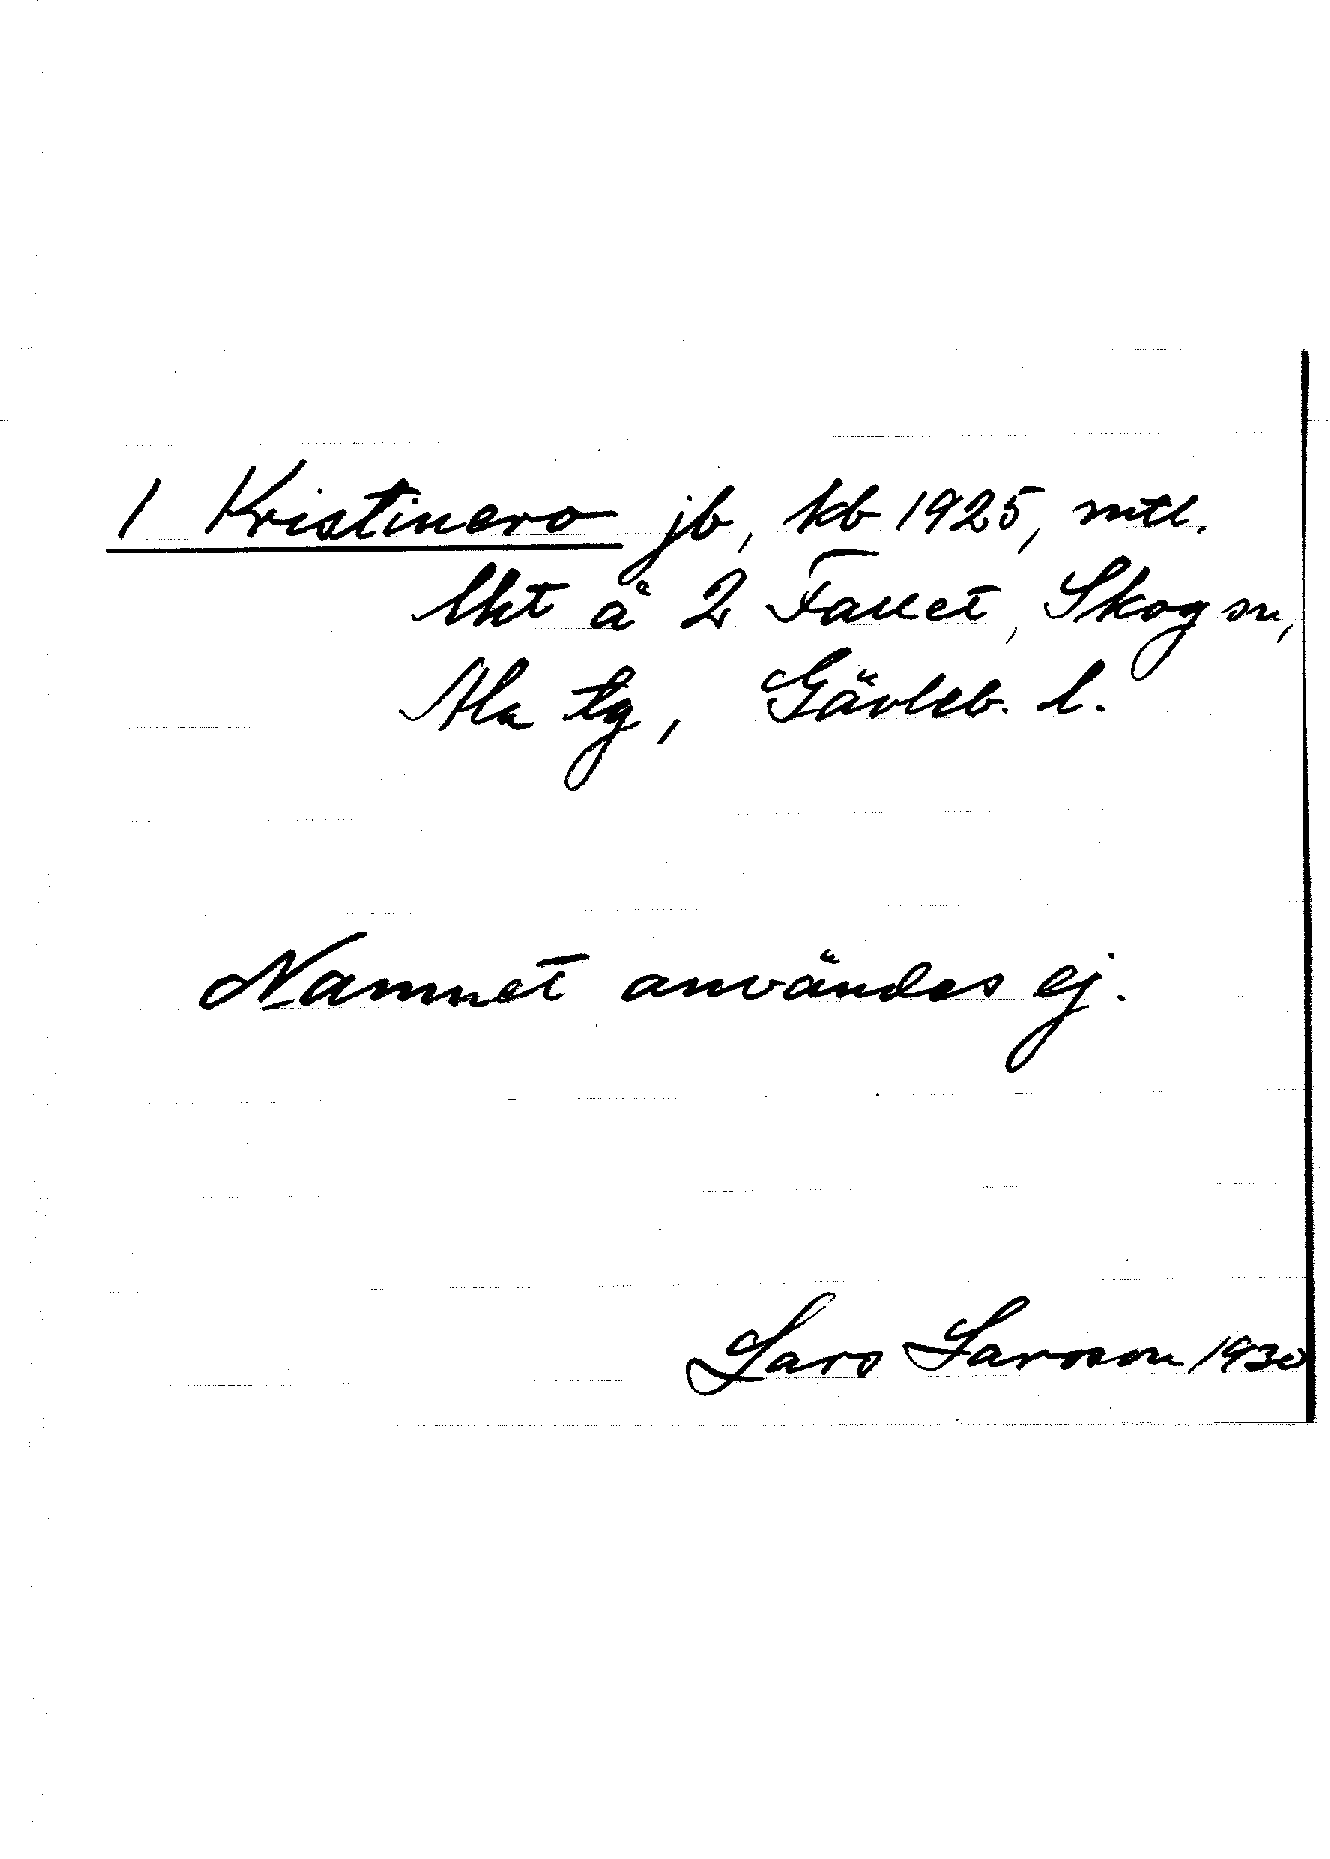 1 Kristinero jb, kb 1925, mtl.
lht å 2 Fallet, Skog sn,
Ala tg, Gävleb. l.
Namnet användes ej.
Lars Larsson 1930